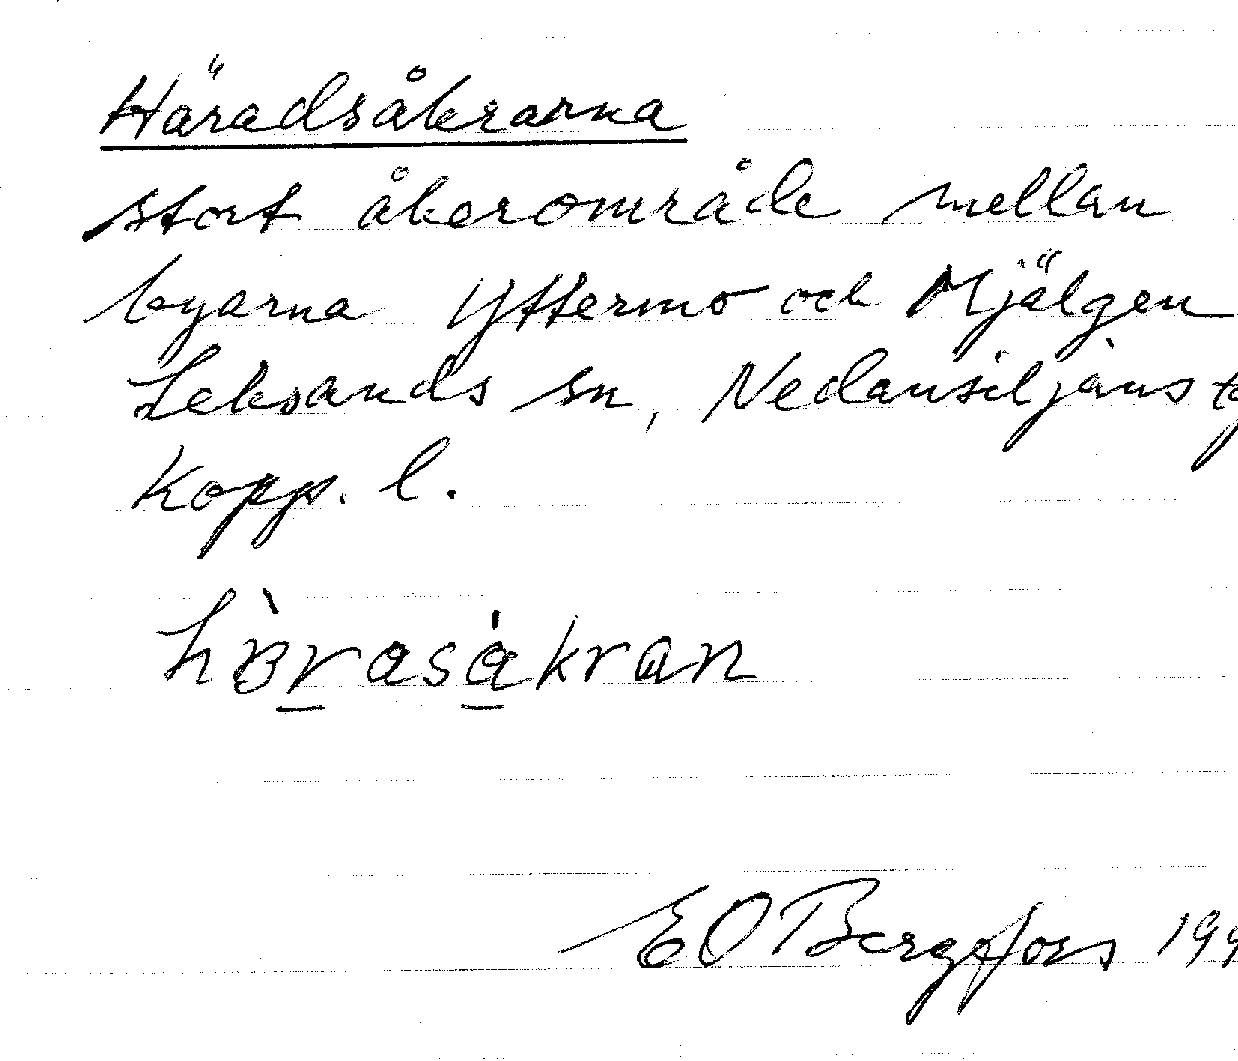 Häradsåkrarna
stort åkerområde mellan
byarna Yttermo och Hjälgen
Leksands sn, Nedansiljans
Kopp. l.
E O Bergfors